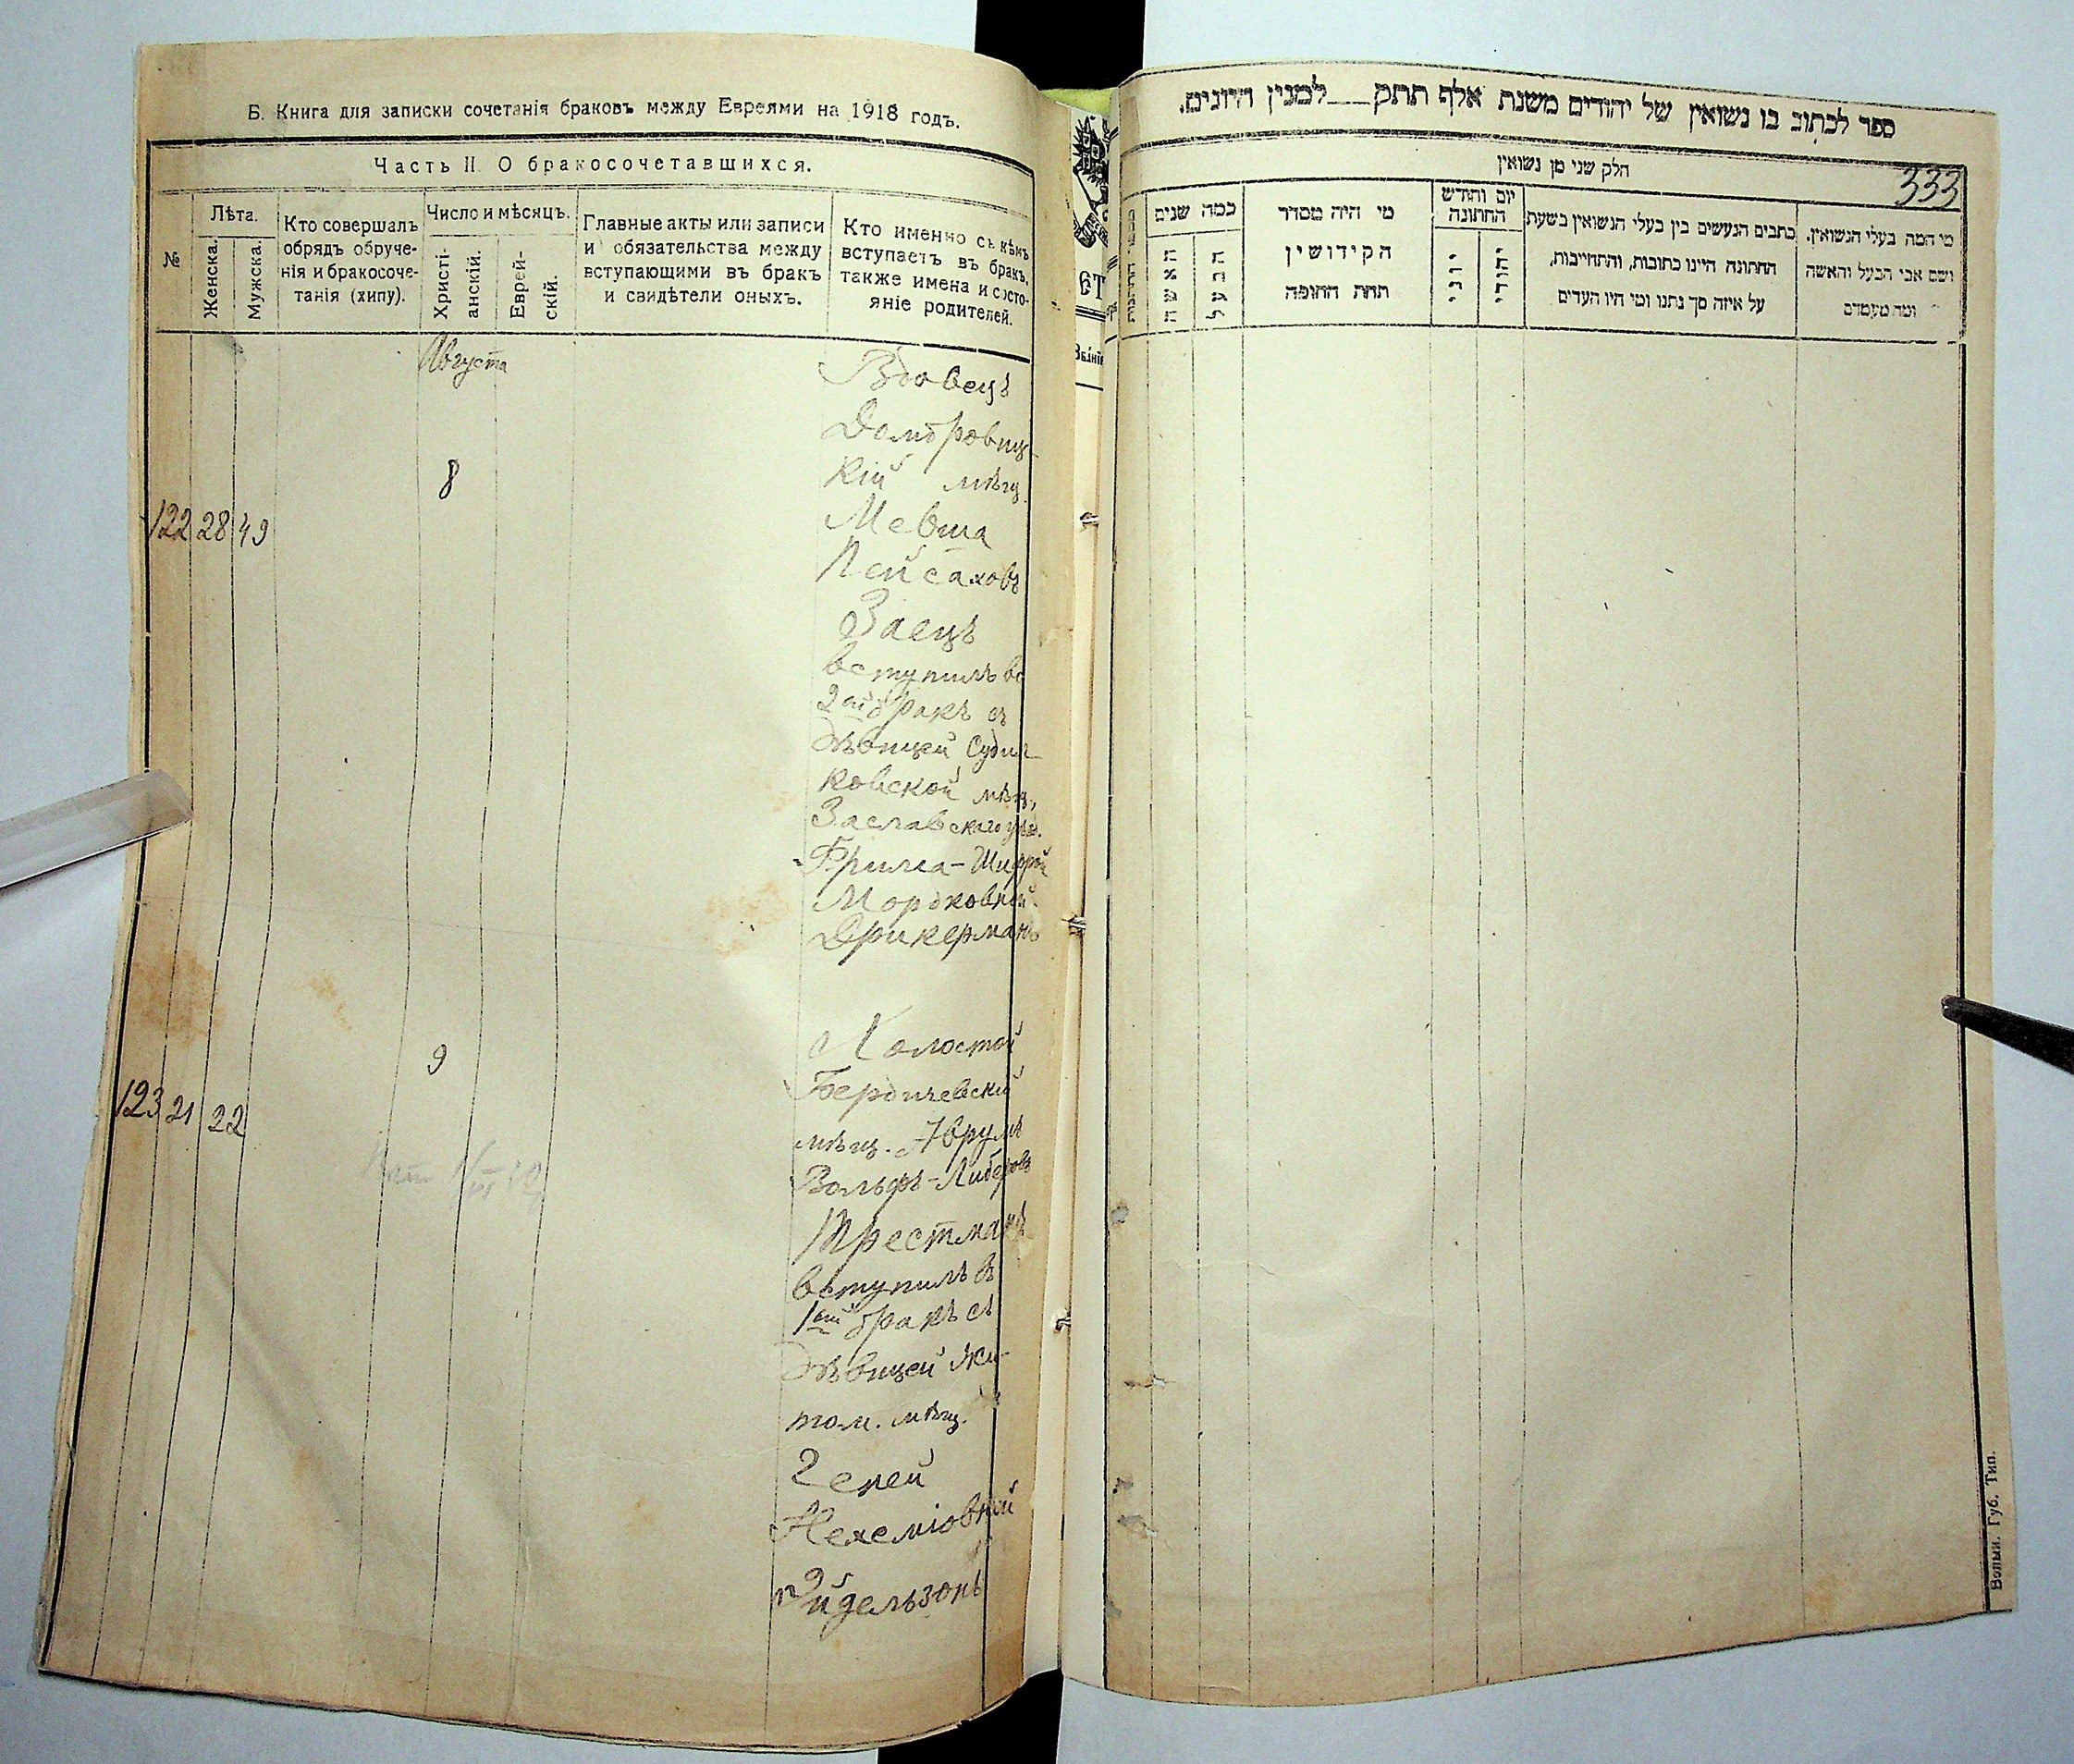 Б. Книга для записки сочетанія браковъ между Евреями на 1918 годъ.
Часть II. О бракосочетавшихся.
№
Лѣта.
Женска.
Мужска.
Кто совершалъ
обрядъ обруче-
нія и бракосоче-
танія (хипу).
Число и мѣсяцъ.
Христі-
анскій.
Еврей-
скій.
Главные акты или записи
и обязательства между
вступающими въ бракъ
и свидѣтели оныхъ.
Кто именно съ кѣмъ
вступаетъ въ бракъ,
также имена и состо-
яніе родителей.
Августа
122 28 49
8
Вдовецъ
Домбровиц-
кій мѣщ.
Мевша
Пейсаховъ
Заецъ
вступилъ во
2ой бракъ съ
дѣвицей Судил-
ковской мѣщ,
Заславскаго уѣз.
Фрима-Шифрой
Мордковной
Дрикерманъ
123 21 22
9
Холостой
Бердичевскій
мѣщ. Аврумъ
Вольфъ-Либеровъ
Трестманъ
вступилъ въ
1ый бракъ съ
дѣвицей Жи-
том. мѣщ.
Геней
Нехеміовной
Эйдельзонъ
ספר לכתוב בו נשואין של יהודים משנת אלף תתק___למנין היונים.
333
חלק שני מן נשואין
כמה שנים
האשה
הבעל
מי היה מסדר
הקידושין
תחת החופה
יום וחודש
החתונה
יוני
יהודי
כתבים הנעשים בין בעלי הנשואין בשעת
החתונה היינו כתובות, והתחייבות,
על איזה סך נתנו ומי היו העדים
מי המה בעלי הנשואין,
ושם אבי הבעל והאשה
ומה מעמדם
Волын. Губ. Тип.